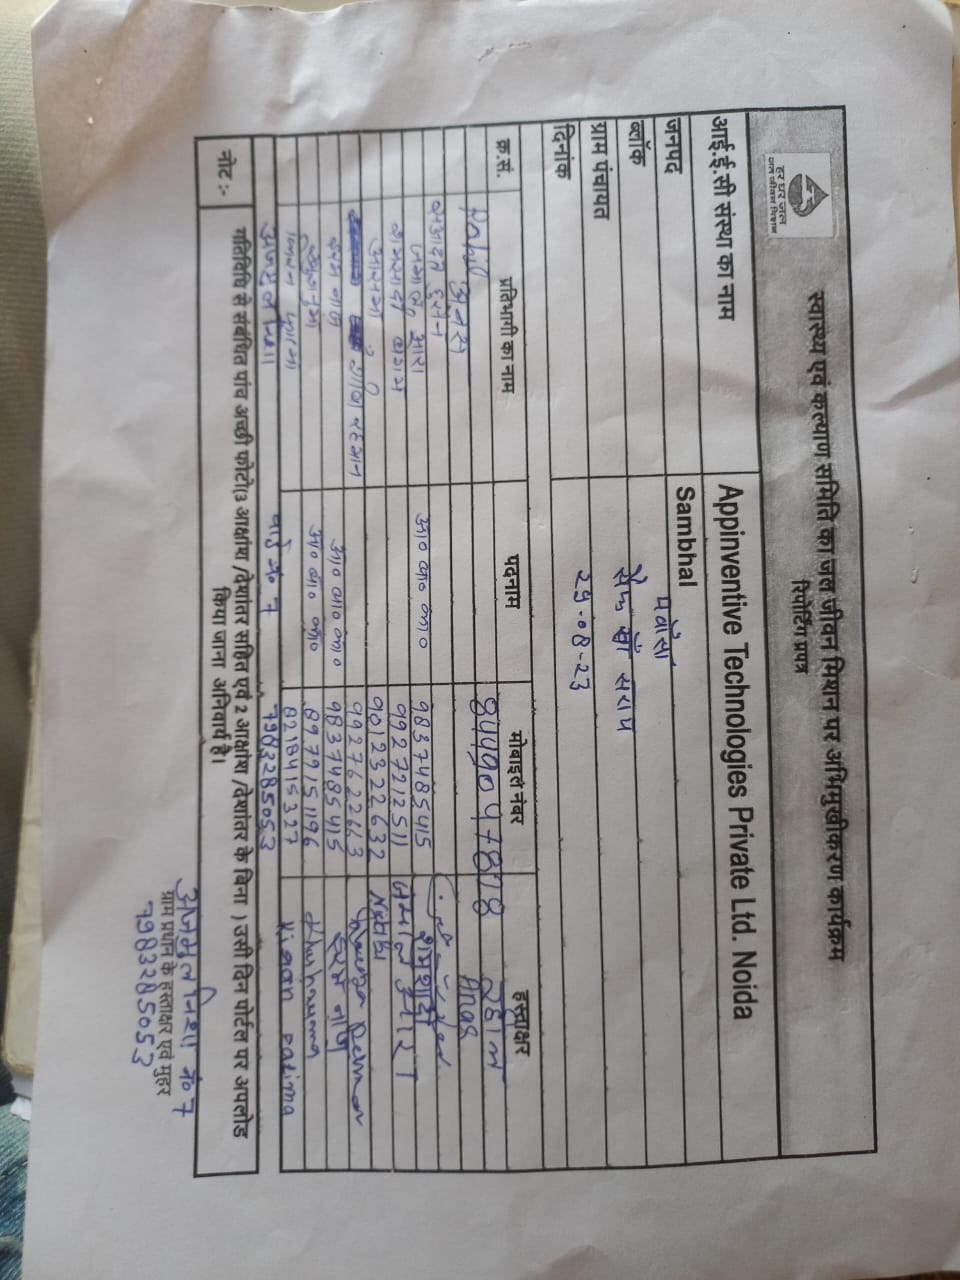 हर घर जल
जल जीवन मिशन
स्वास्थ्य एवं कल्याण समिति का जल जीवन मिशन पर अभिमुखीकरण कार्यक्रम
रिपोर्टिंग प्रपत्र
आई.ई.सी संस्था का नाम Appinventive Technologies Private Ltd. Noida
जनपद Sambhal
ब्लॉक पवांसा
ग्राम पंचायत सराय
दिनांक 29-08-23
क्र.सं. प्रतिभागी का नाम पदनाम मोबाईल नंबर हस्ताक्षर
8449047818
अनस Anas
हुसैन
आरा आ० बा० का० 9837485415
बेगम 9927212511
आसमा 9012322632
9927622663
नाज आ० बा० का० 9837485415 नाज
खुशनुमा आ० बा० का० 8979151196 Khushnuma
किरन फातमा 8218415327 Kiran Fatima
अन्जुम निशा वार्ड न० 7 7983285053
नोट :- गतिविधि से संबंधित पांच अच्छी फोटो(3 आक्षांश /देशांतर सहित एवं 2 आक्षांश /देशांतर के बिना ) उसी दिन पोर्टल पर अपलोड
किया जाना अनिवार्य है।
निशा न० 7
ग्राम प्रधान के हस्ताक्षर एवं मुहर
7983285053